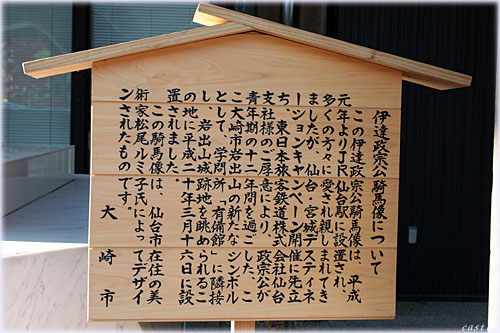 伊達政宗公騎馬像について
この伊達政宗公騎馬像は、平成
元年よりJR仙台駅に設置され、
多くの方々に愛され親しまれてき
ましたが、仙台・宮城デスティネ
ーションキャンペーン開催に先立
ち、東日本旅客鉄道株式会社仙台
支社様のご厚意により政宗公が
青年期の十二年間を過ごした、こ
こ大崎市岩出山の新たなシンボル
として、学問所「有備館」に隣接
し、岩出山城跡地を眺められるこ
の地に平成二十年三月十六日に設
置されました。
この騎馬像は、仙台市在住の美
術家松尾ルミ子氏によってデザイ
ンされたものです。
大崎市